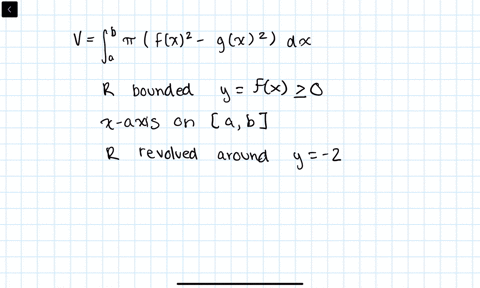 V = ∫_a^b π ( f(x)² - g(x)² ) dx
R bounded y = f(x) ≥ 0
x-axis on [a, b]
R revolved around y = -2